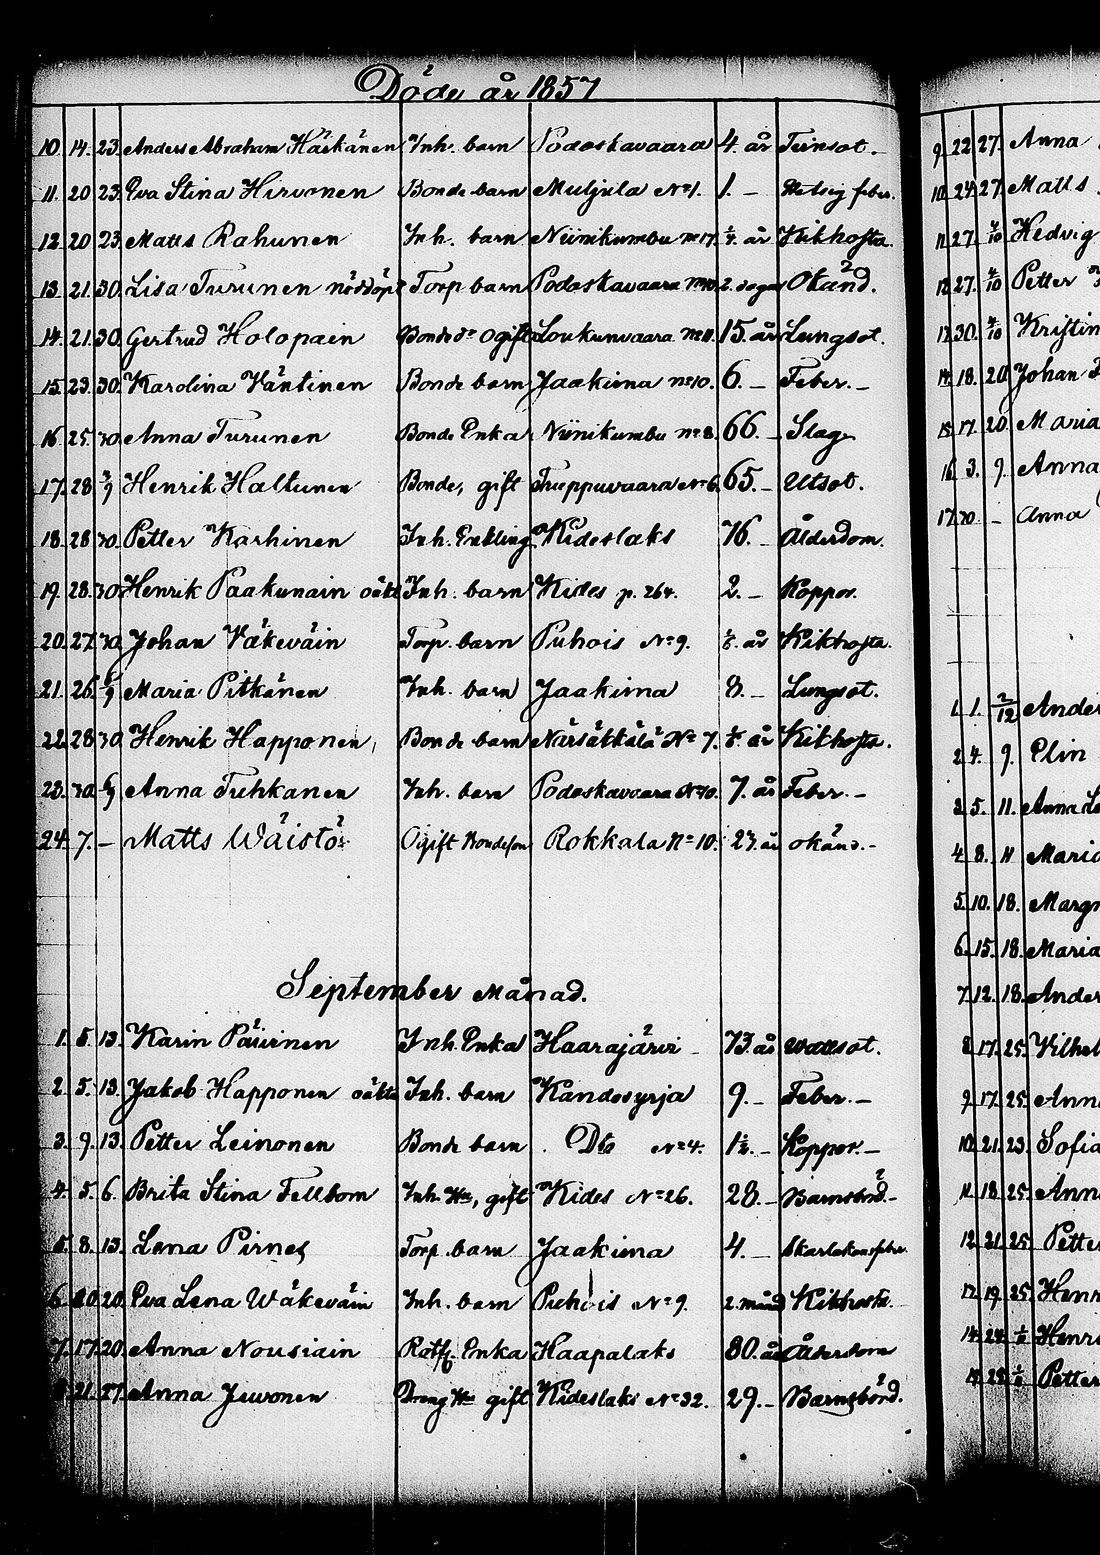 Döde år 1857
10. 14. 23. Anders Abraham Häikänen Inh. barn Podoskavaara 4. år Tvinsot. -
11. 20 23. Eva Stina Hirvonen Bonde barn Muljula No 1. 1. - feber.
12. 20 23. Matts Rahunen Inh. barn Niinikumbu no 17. år Kikhosta.
13. 21. 30. Lisa Turunen nöddöpt Torp barn Podoskavaara 2. dagar Okänd.
14. 21. 30. Gertrud Holopain Bonde dr Ogift Loukunvaara no 11. 15. år Lungsot.
15. 23. 30. Karolina Väntinen Bonde barn Jaakima no 10. 6. - Feber. -
16 25. 30. Anna Turunen Bonde Enka Niinikumbu no 8. 66. - Slag
17. 28 2/9 Henrik Haltunen Bonde, gift Truppuvaara No 6. 65. - Utsot.
18. 28 30. Petter Karhinen Inh. Enkling Kideslaks 76. - Ålderdom.
19. 28. 30. Henrik Paakunain oäkt Inh. barn Kides p. 264. 2. - Koppor.
20. 27. 30. Johan Väkeväin Torp. barn Puhois No 9. år Kikhosta.
21. 26. 6/9 Maria Pitkänen Inh. barn Jaakima 8. - Lungsot.
22. 28 30 Henrik Happonen, Bonde barn Närsäkkälä No 7. år Kikhosta.
23. 30. 6/9 Anna Tuhkanen Inh. barn Podoskavaara No 10. 7. år Feber. -
24. 7. - Matts Wäistö Ogift Bondeson Rokkala No 10. 23. år okänd. -
September Månad.
1. 5. 13. Karin Päiirnen Inh. Enka Haarajärvi 73. år Wattsot.
2. 5. 13. Jakob Happonen oäkta Inh. barn Kandosyrja 9. - Feber. -
3. 9. 13. Petter Leinonen Bonde barn Dto No 4. 1½. - Koppor. -
4. 5. 6. Brita Stina Fellbom Inh. Hu, gift Kides No 26. 28. - Barnsbörd. -
5. 8. 13. Lena Pirnes Torp. barn Jaakima 4. - Skarlakansfeber.
6. 20. Eva Lena Wäkeväin Inh. barn Puhois No 9. 2. mån Kikhosta.
7. 17. 20. Anna Nousiain Rotf. Enka Haapalaks 80. år Ålderdom
8. 21. 27. Anna Juvonen Dreng Hu gift Kideslaks No 32. 29. - Barnsbörd.
9. 22 27. Anna
10. 24. 27. Matts
11. 27. 4/10 Hedvig
12. 27. 4/10 Petter
13. 30. 4/10 Kristin
14. 18. 20. Johan
15. 17. 20. Maria
16. 3. 9. Anna
17. 20. - Anna
1. 1. 2/12 Ander
2. 4. 9. Elin
3. 5. 11. Anna
4. 8. 11 Maria
5. 10. 18. Margr
6. 15. 18. Maria
7. 12. 18. Ander
8. 17. 25. Vilhel
9. 17. 25. Anna
10. 21. 23. Sofia
11. 18. 25. Anna
12. 21. 25. Petter
13. 19. 25. Henr
14. Henri
15. Petter